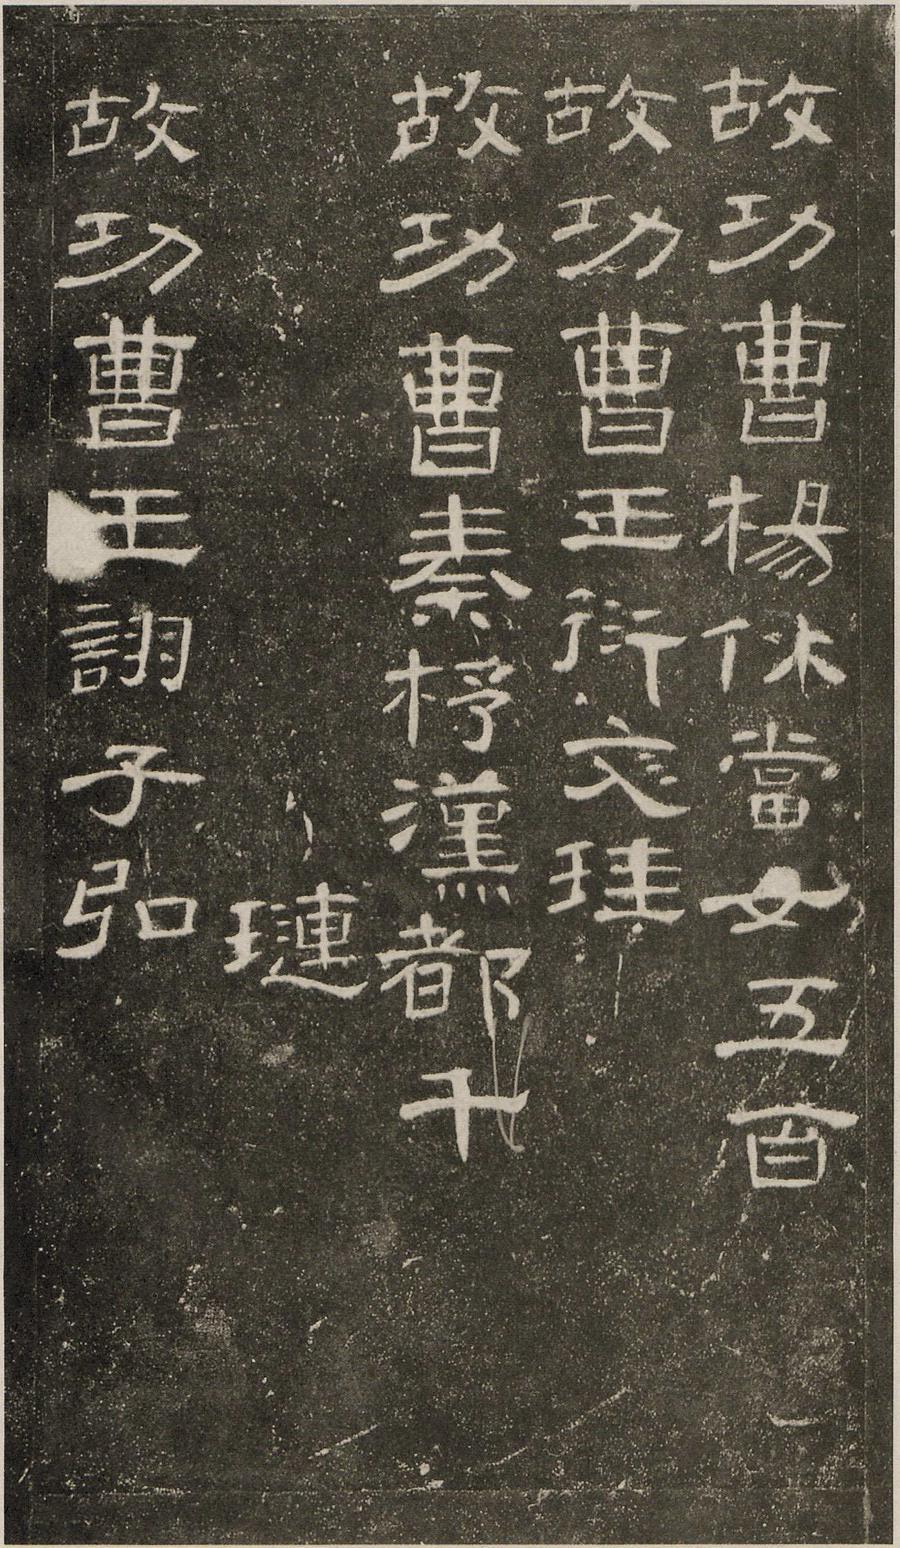 故功曹楊休當女五百
故功曹王衍文珪
故功曹秦杼漢都千
璉
故功曹王詡子弘